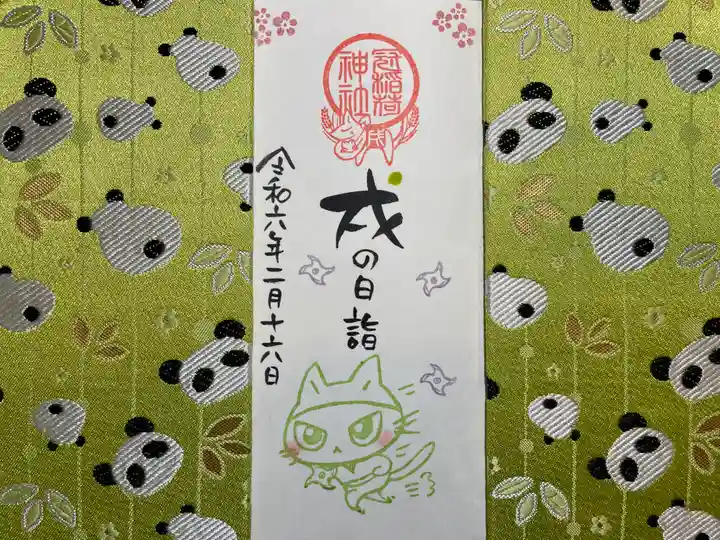 冠稲荷
神社
戌の日詣
令和六年二月十六日